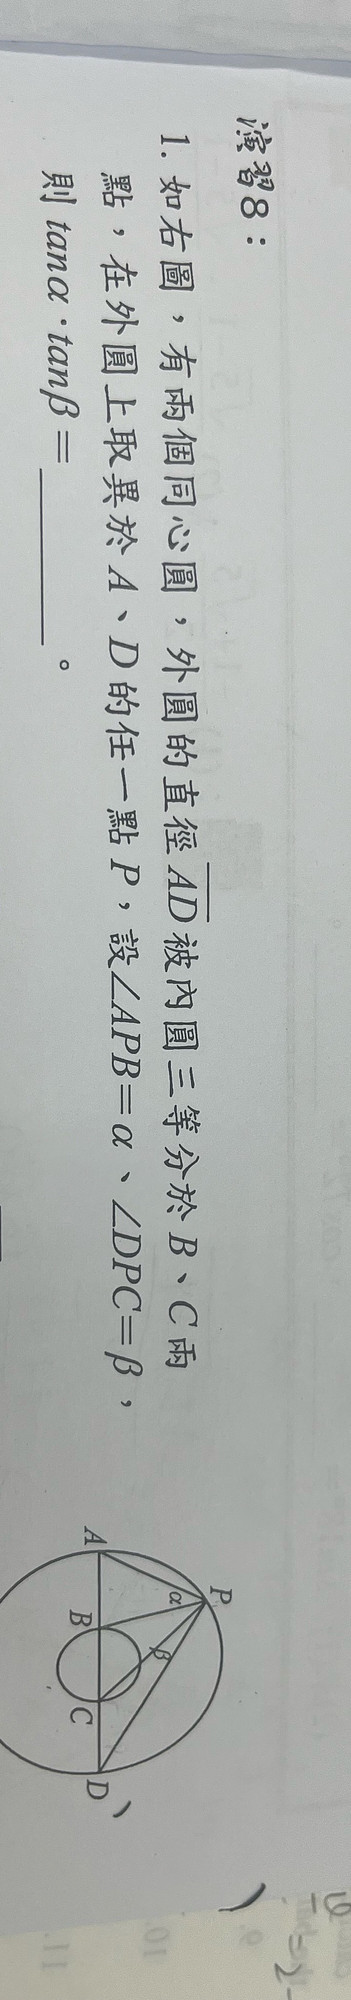 演習8：
1. 如右圖，有兩個同心圓，外圓的直徑AD被內圓三等分於B、C兩
點，在外圓上取異於A、D的任一點P，設∠APB=α、∠DPC=β，
則tanα·tanβ=________。
P
α
β
A
B
C
D